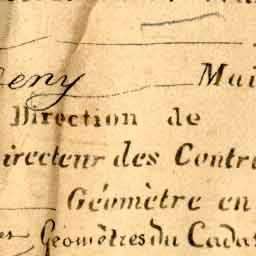 eny Mai
Direction de
irecteur des Contr
Géomètre en
es Géomètres du Cada